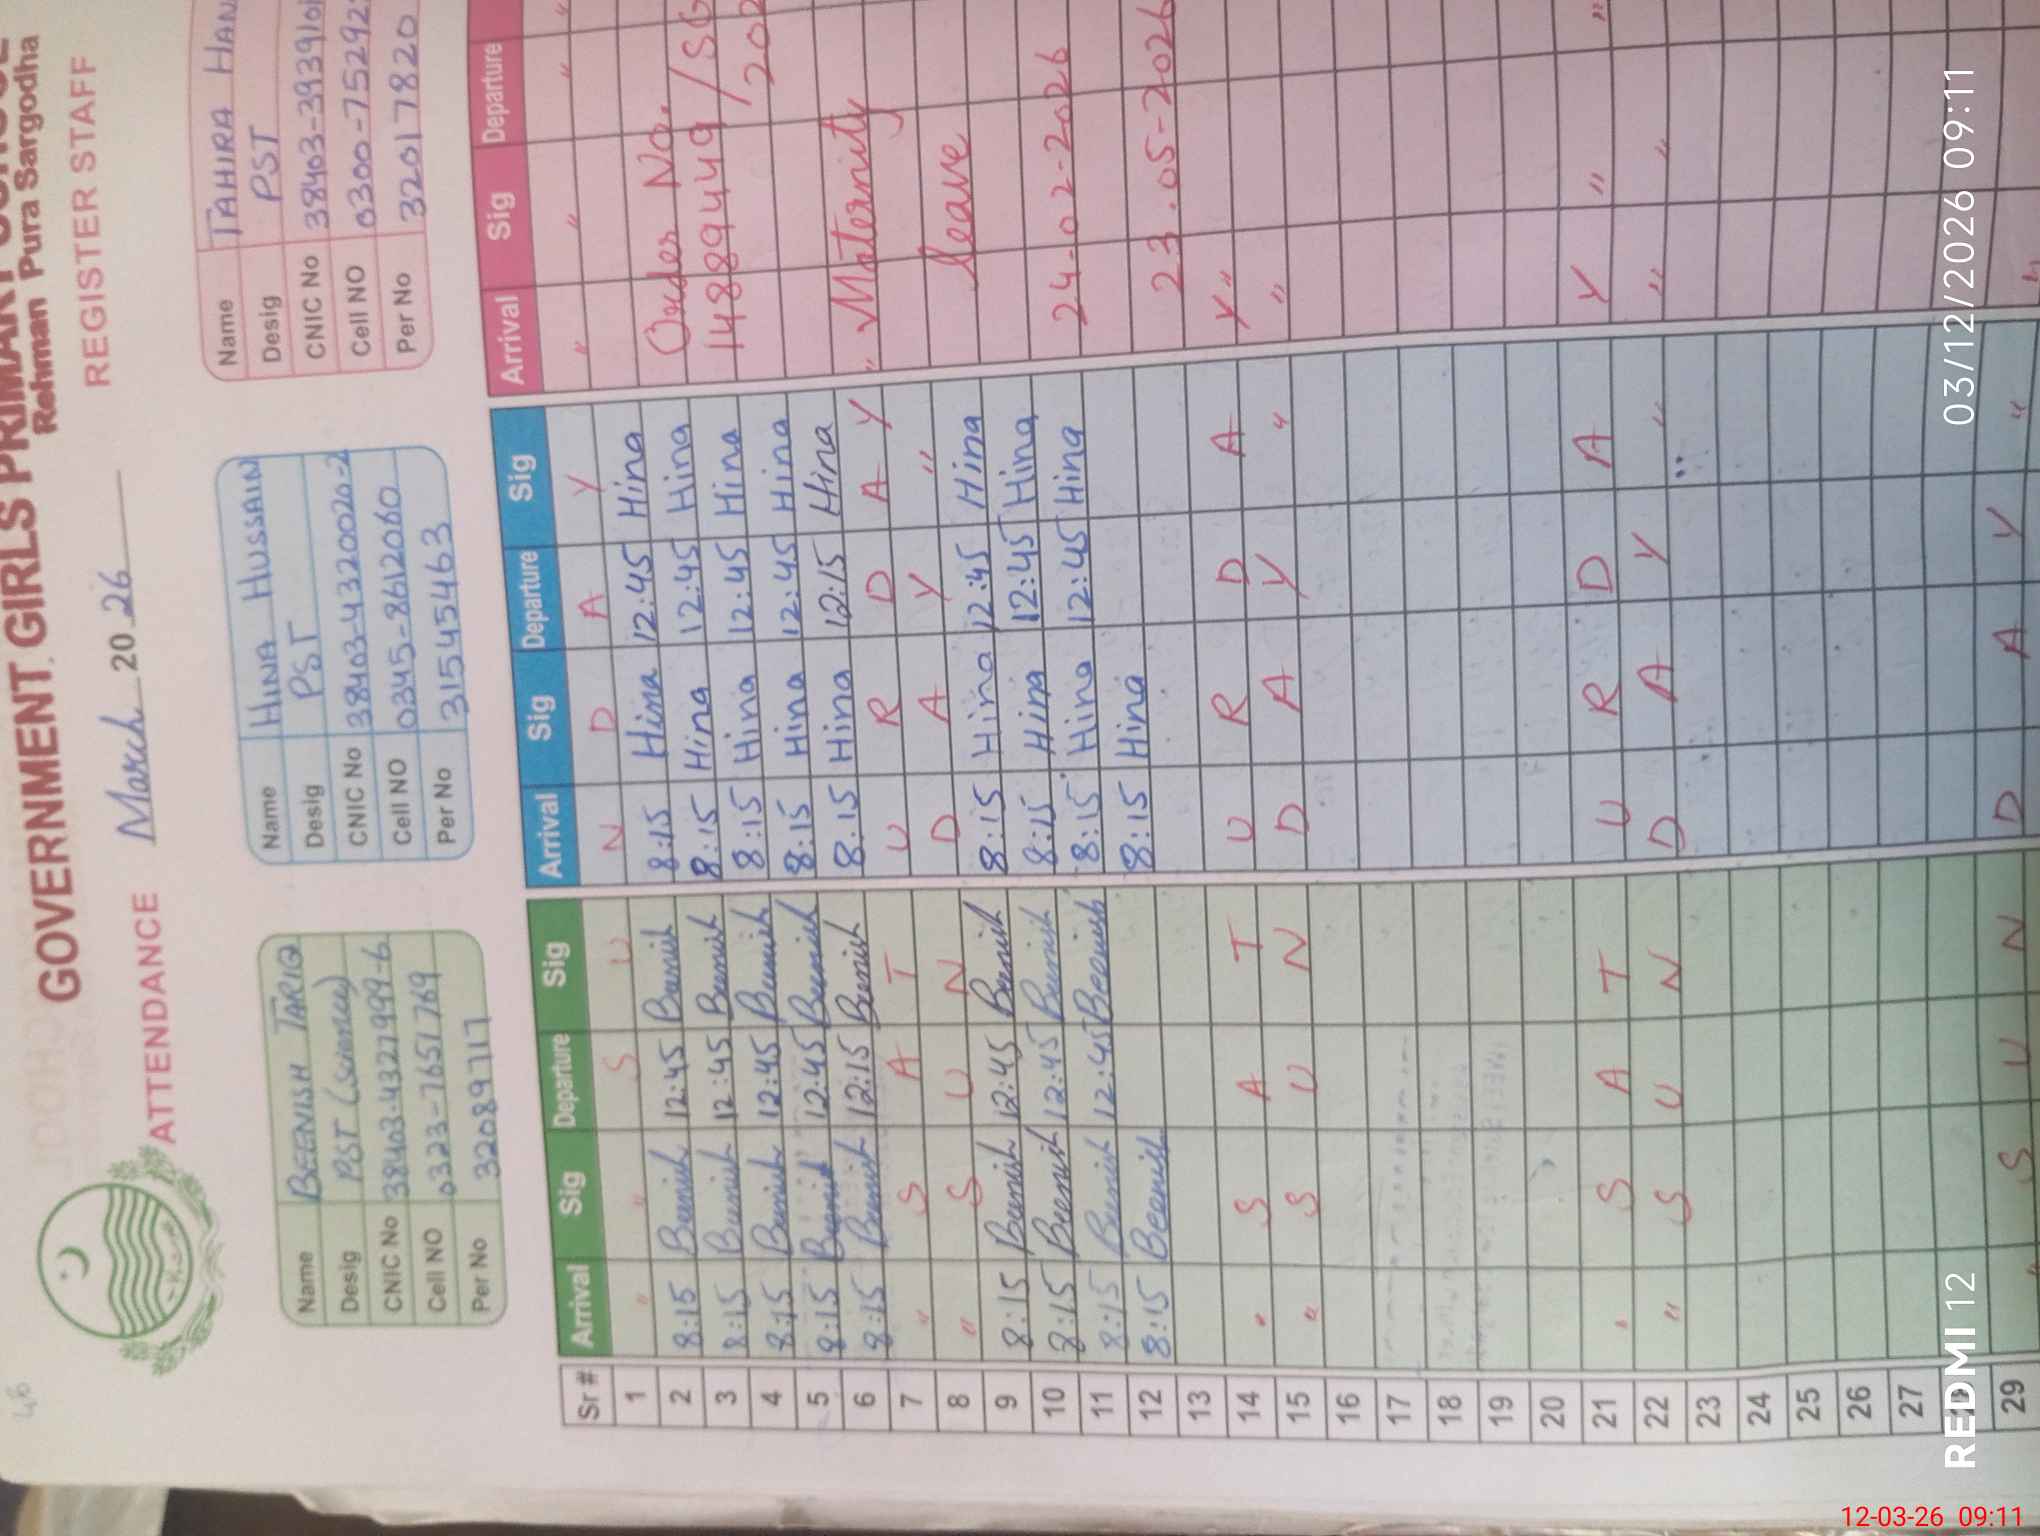 GOVERNMENT GIRLS PRIMARY
Rehman Pura Sargodha
ATTENDANCE March 2026 REGISTER STAFF
Name BEENISH TARIQ
Desig PST (Science)
CNIC No 38403-4327999-6
Cell NO 0323-7651769
Per No 32089717
Name HINA HUSSAIN
Desig PST
CNIC No 38403-4320020-2
Cell NO 0345-8612060
Per No 31545463
Name TAHIRA HAN
Desig PST
CNIC No 38403-393910
Cell NO 0300-75292
Per No 32017820
Sr # Arrival Sig Departure Sig Arrival Sig Departure Sig Arrival Sig Departure
1 " " S U N D A Y " " "
2 8:15 Beenish 12:45 Beenish 8:15 Hina 12:45 Hina
3 8:15 Beenish 12:45 Beenish 8:15 Hina 12:45 Hina Order No.
4 8:15 Beenish 12:45 Beenish 8:15 Hina 12:45 Hina 14889449/SG
5 8:15 Beenish 12:45 Beenish 8:15 Hina 12:45 Hina /202
6 8:15 Beenish 12:15 Beenish 8:15 Hina 12:15 Hina
7 " S A T U R D A Y " Maternity
8 " S U N D A Y "
9 8:15 Beenish 12:45 Beenish 8:15 Hina 12:45 Hina leave
10 8:15 Beenish 12:45 Beenish 8:15 Hina 12:45 Hina
11 8:15 Beenish 12:45 Beenish 8:15 Hina 12:45 Hina 24-02-2026
12 8:15 Beenish 8:15 Hina
13 23.05-2026
14 " S A T U R D A Y "
15 " S U N D A Y " "
16
17
18
19
20
21 " S A T U R D A Y " "
22 " S U N D A Y " " "
23
24
25
26
27
29 " S U N D A Y " "
REDMI 12 03/12/2026 09:11
12-03-26 09:11